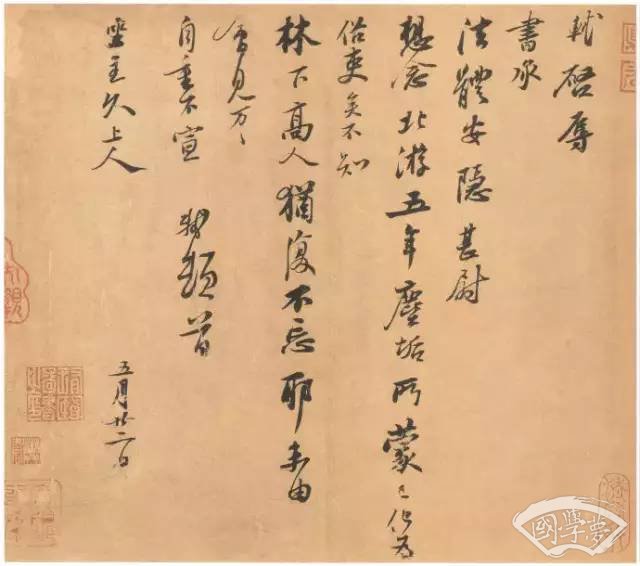 軾啓辱
書承
法體安隱甚尉
想念北游五年塵垢所蒙已化為
俗吏矣不知
林下高人猶復不忘耶未由
會見万〻
自重不宣 軾頓首
坐主久上人
五月廿二日
國學夢